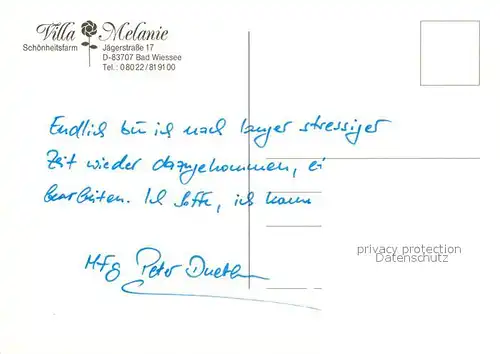 Villa Melanie
Schönheitsfarm
Jägerstraße 17
D-83707 Bad Wiessee
Tel.: 08022/819100
Endlich bin ich nach langer stressiger
Zeit wieder dazugekommen, ei
bearbeiten. Ich hoffe, ich kann
privacy protection
Datenschutz
MfG Peter